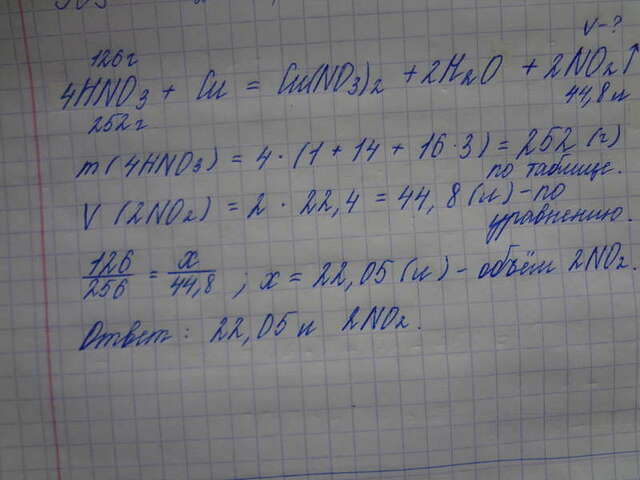 V-?
126г
4HNO3 + Cu = Cu(NO3)2 + 2H2O + 2NO2↑
252г
44,8 л
m(4HNO3) = 4 · (1 + 14 + 16 · 3) = 252 (г)
по таблице.
V (2NO2) = 2 · 22,4 = 44,8 (л) - по
уравнению.
126/256 = x/44,8 ; x = 22,05 (л) - объём 2NO2.
Ответ: 22,05 л 2NO2.